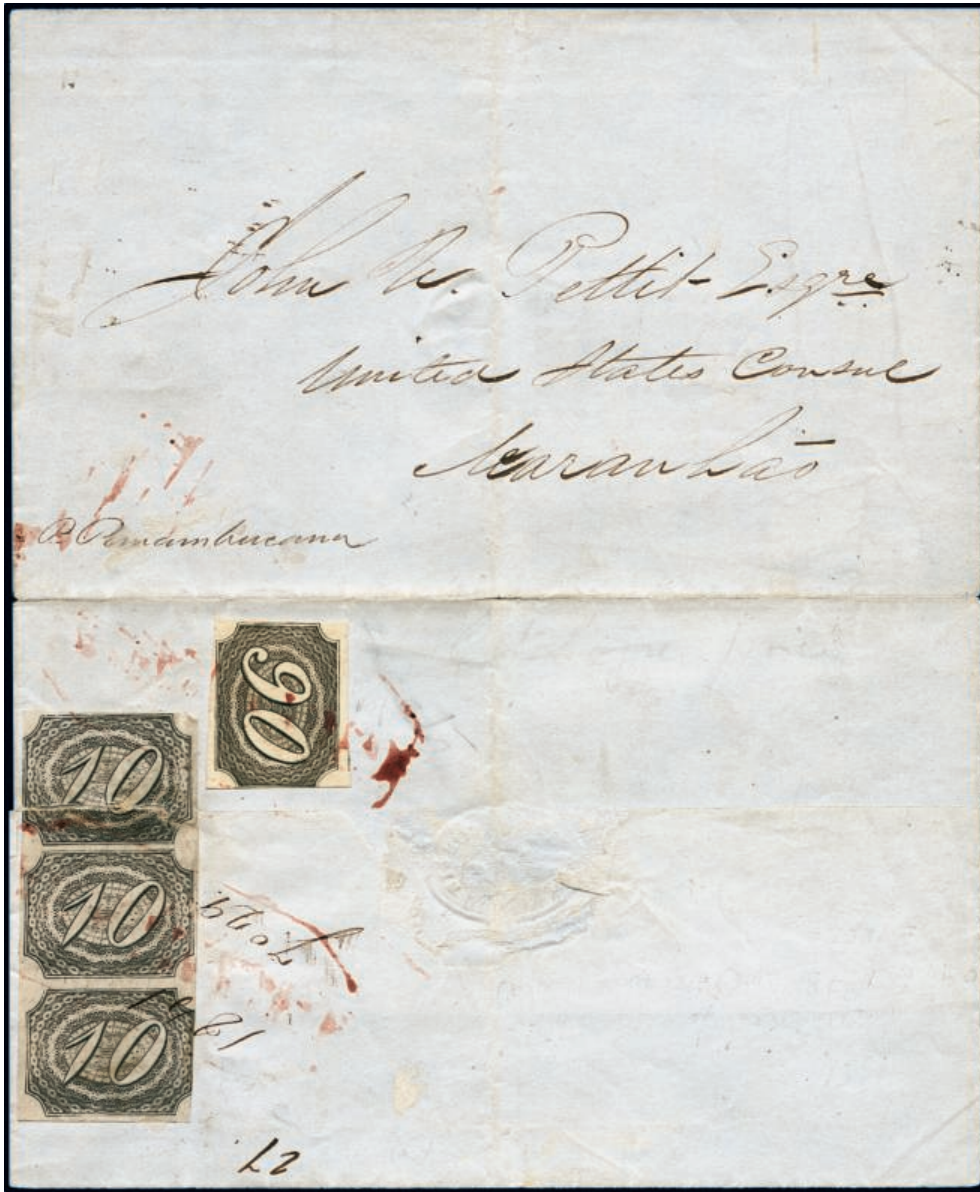 John W. Pettit Esqre
United States Consul
Maranhão
P. Pernambucana
90
10
10
10
27